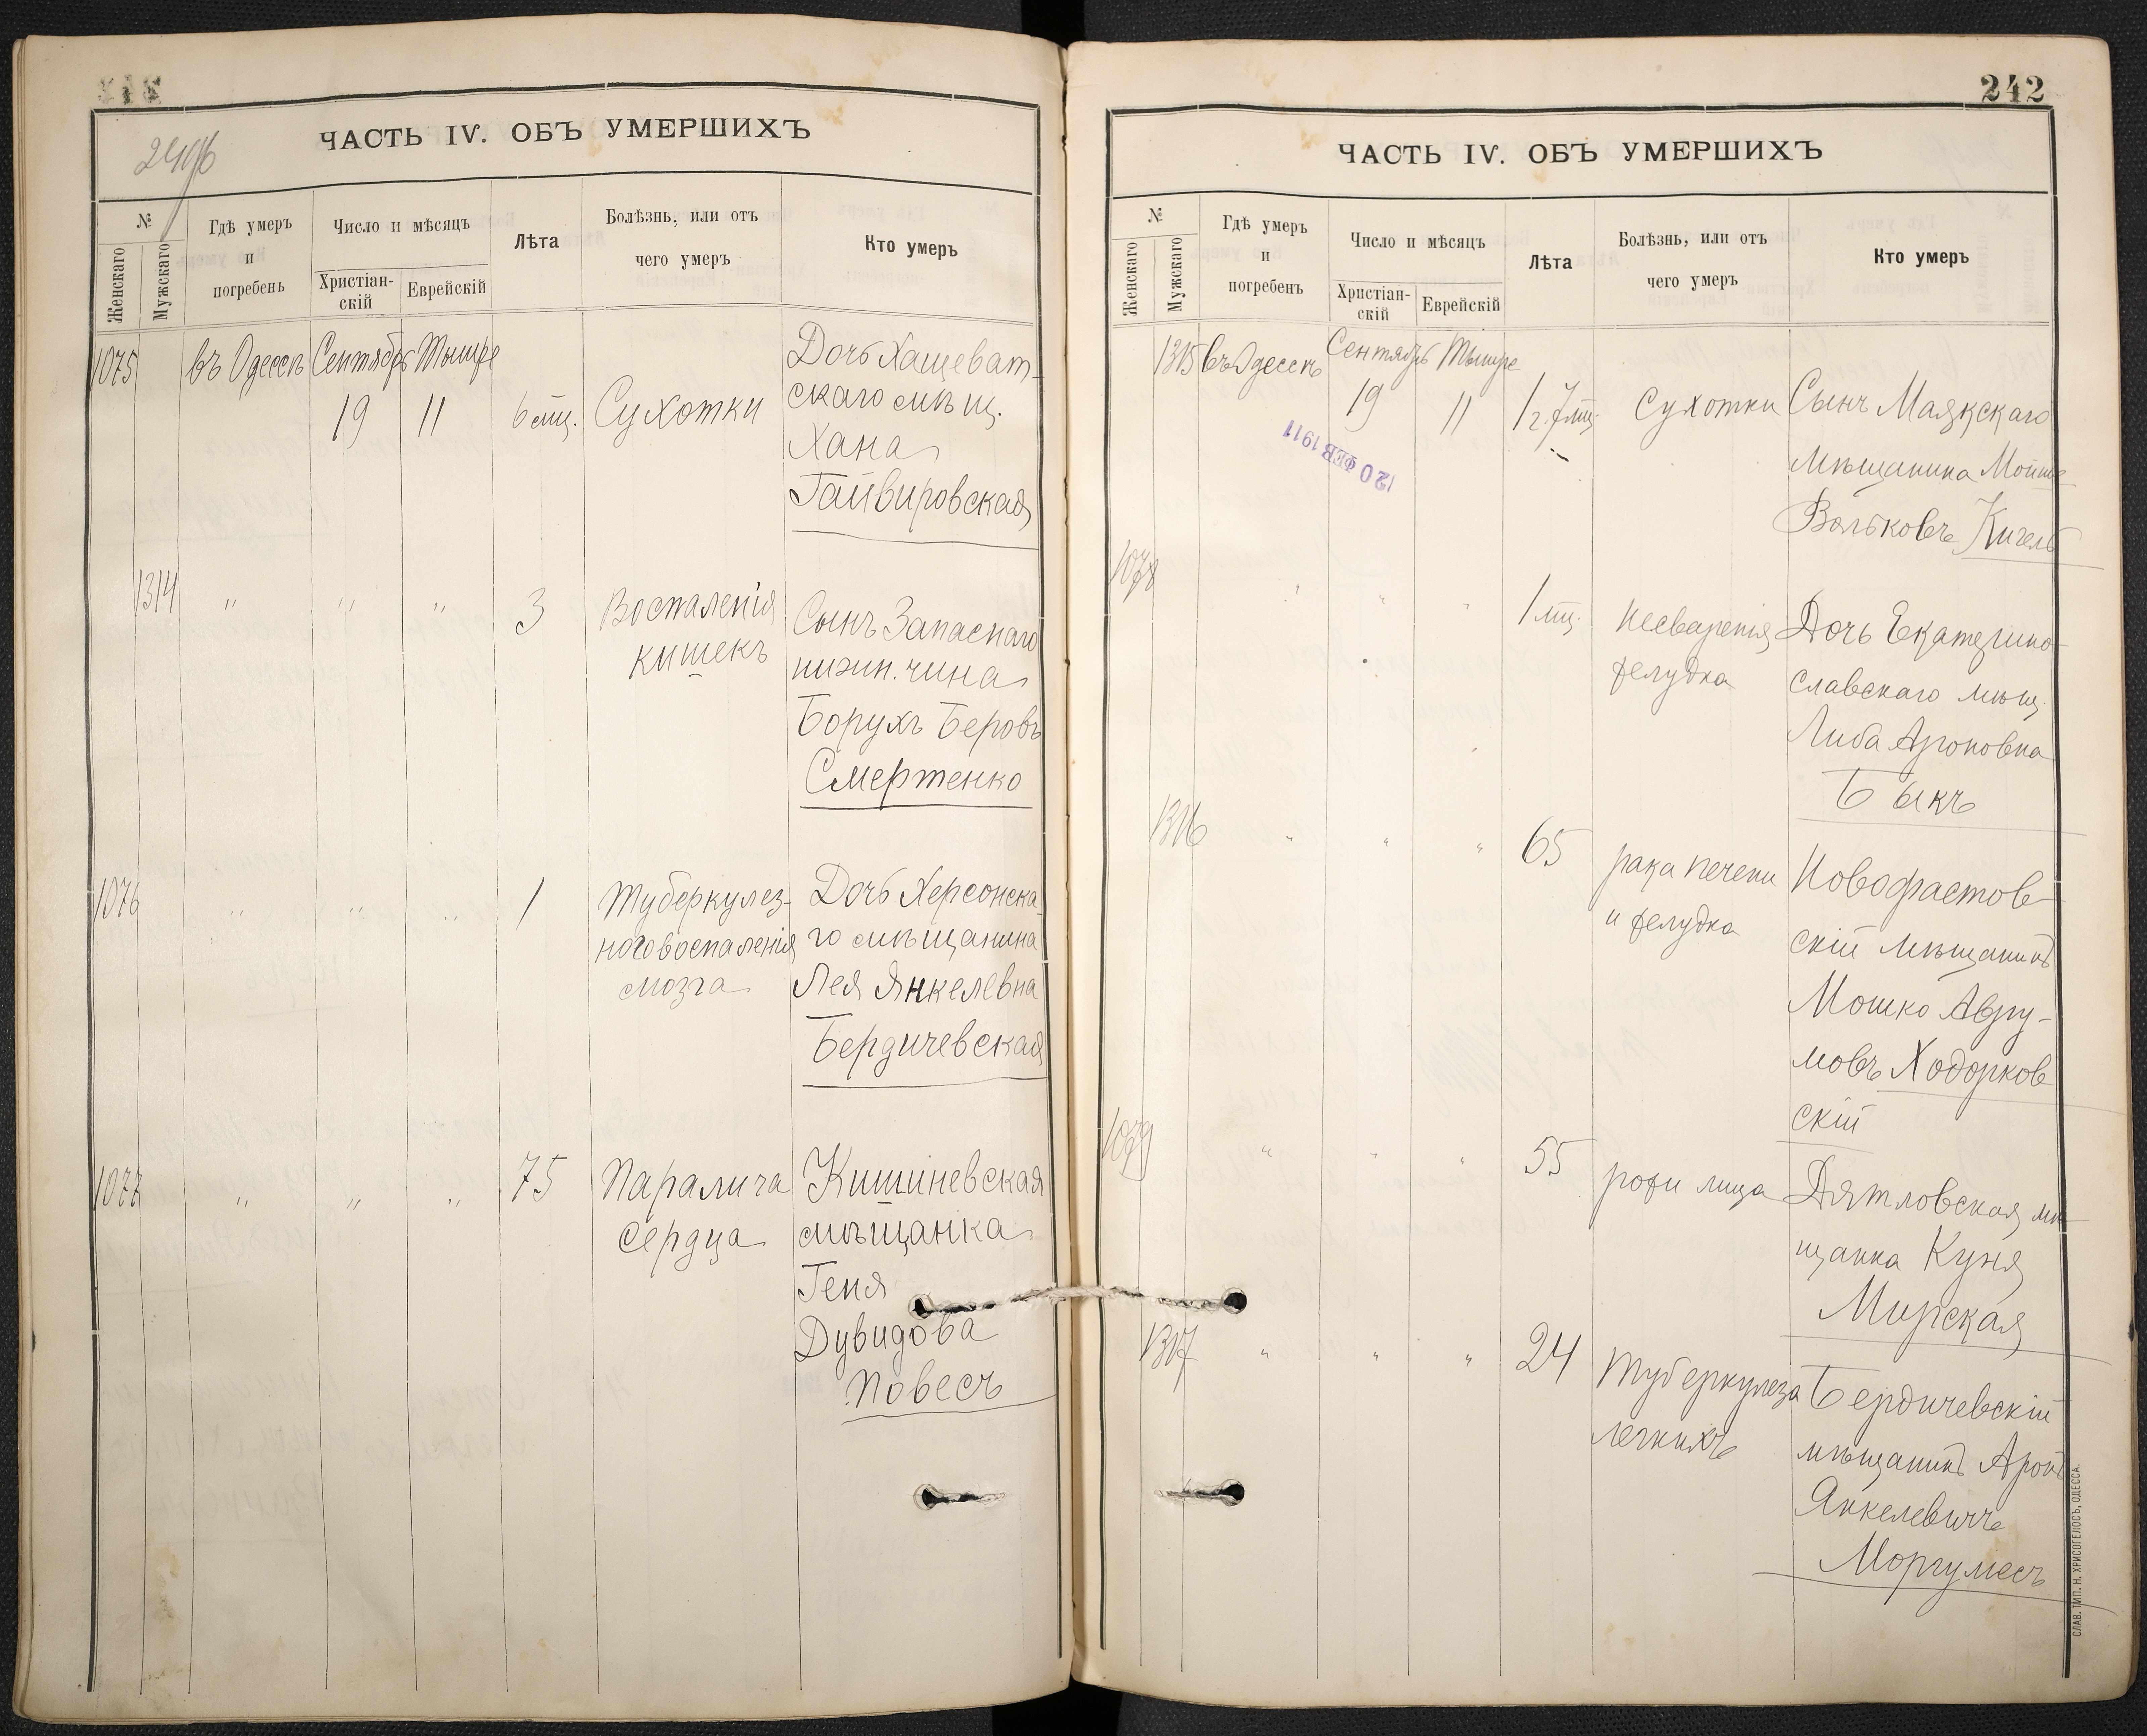 ЧАСТЬ IV. ОБЪ УМЕРШИХЪ
№
Женскаго
Мужскаго
Гдѣ умеръ
и
погребень
Число и мѣсяцъ
Христіан-
скій
Еврейскій
Лѣта
Болѣзнь, или отъ
чего умеръ
Кто умеръ
1075 въ Одессѣ Сентябрь Тышре
19 11 6 мц. Сухотки
Дочь Хащеват-
скаго мѣщ.
Хана
Гайвировская
1314 " " " 3
Воспаленія
кишекъ
Сынъ Запаснаго
нижн. чина
Борухъ Беровъ
Смертенко
1076 " " " 1
Туберкулез-
наго воспаленія
мозга
Дочь Херсонска-
го мѣщанина
Лея Янкелевна
Бердичевская
1077 " " " 75
Паралича
Сердца
Кишиневская
мѣщанка
Геня
Дувидова
Повесъ
242
ЧАСТЬ IV. ОБЪ УМЕРШИХЪ
№
Женскаго
Мужскаго
Гдѣ умеръ
и
погребенъ
Число и мѣсяцъ
Христіан-
скій
Еврейскій
Лѣта
Болѣзнь, или отъ
чего умеръ
Кто умеръ
1315 въ Одессѣ Сентябрь Тышре
19 11 1 г. 7 мц. Сухотки
20 ФЕВ 1911
Сынъ Маякскаго
мѣщанина Мойше
Вольковъ Кигель
1078 " " " 1 мц.
Несваренія
желудка
Дочь Екатерино-
славскаго мѣщ.
Либа Ароновна
Быкъ
1316 " " " 65
рака печени
и желудка
Новофастов-
скій мѣщанинъ
Мошко Авру-
мовъ Ходорков
скій
1079 " " " 55
рожи лица
Дятловская мѣ-
щанка Куня
Мирская
1317 " " " 24
Туберкулеза
легкихъ
Бердичевскій
мѣщанинъ Аронъ
Янкелевичъ
Моргулисъ
СЛАВ. ТИП. Н. ХРИСОГЕЛОСЪ, ОДЕССА.